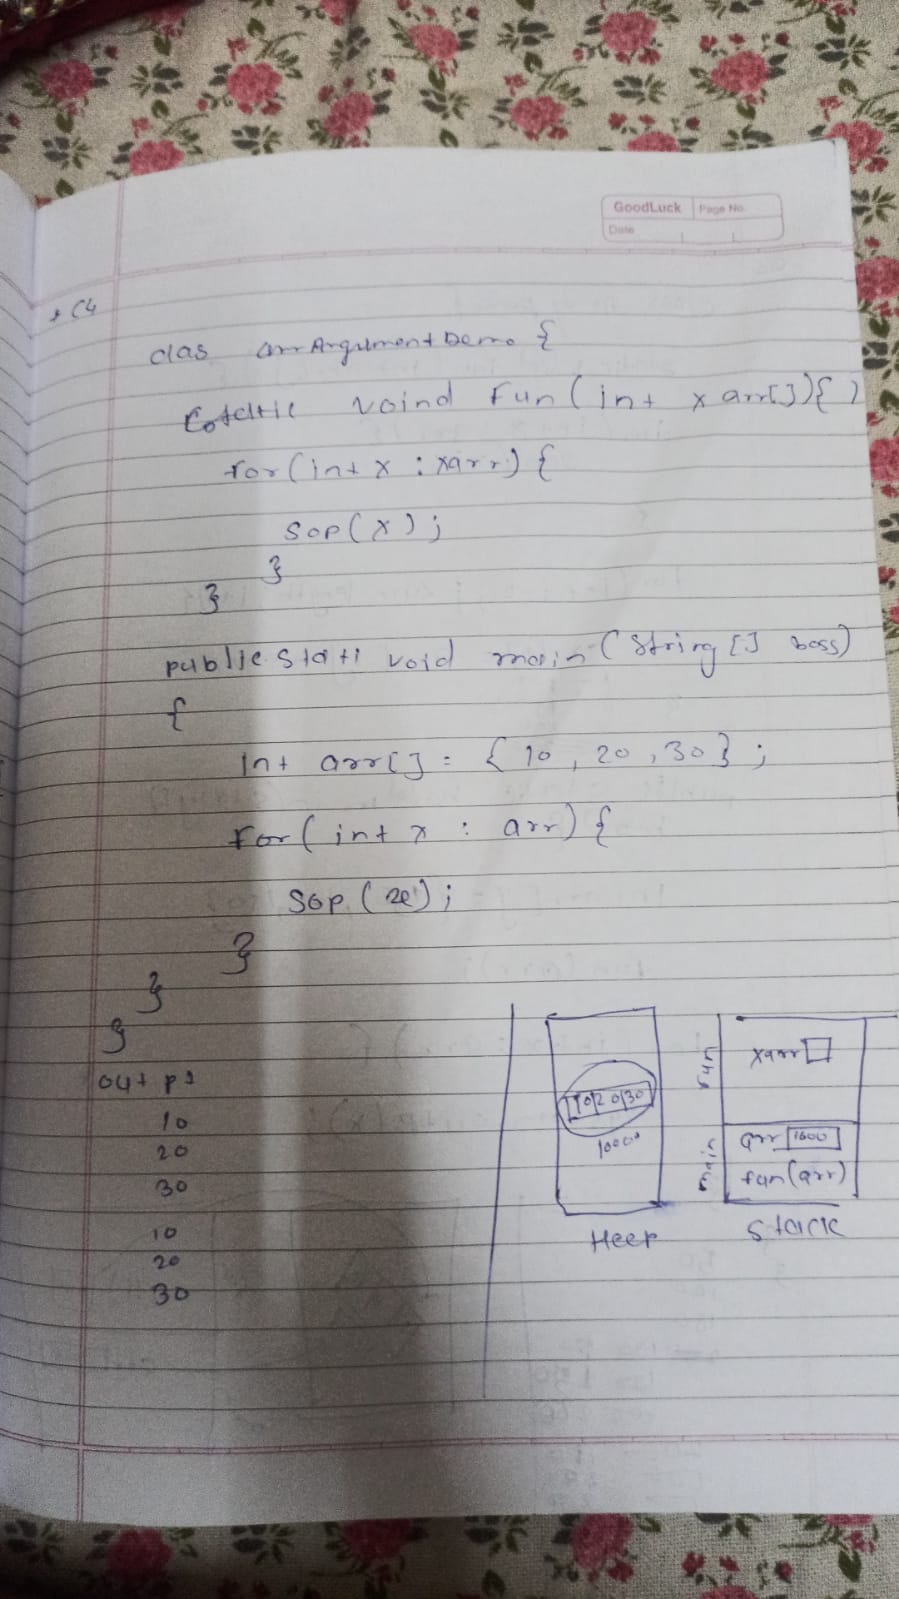 GoodLuck Page No.
Date
* C4
clas arrArgumentDemo {
voind Fun ( int xarr[]){ }
for(int x : xarr) {
Sop(x);
}
}
public stati void main ( String [] boss)
{
Int arr[] = { 10 , 20 , 30 } ;
For( int x : arr) {
Sop (x);
}
}
}
out p
10
20
30
10
20
30
10 20 30
1000
Heep
Fun
xarr
main
arr 1000
fun(arr)
Stack